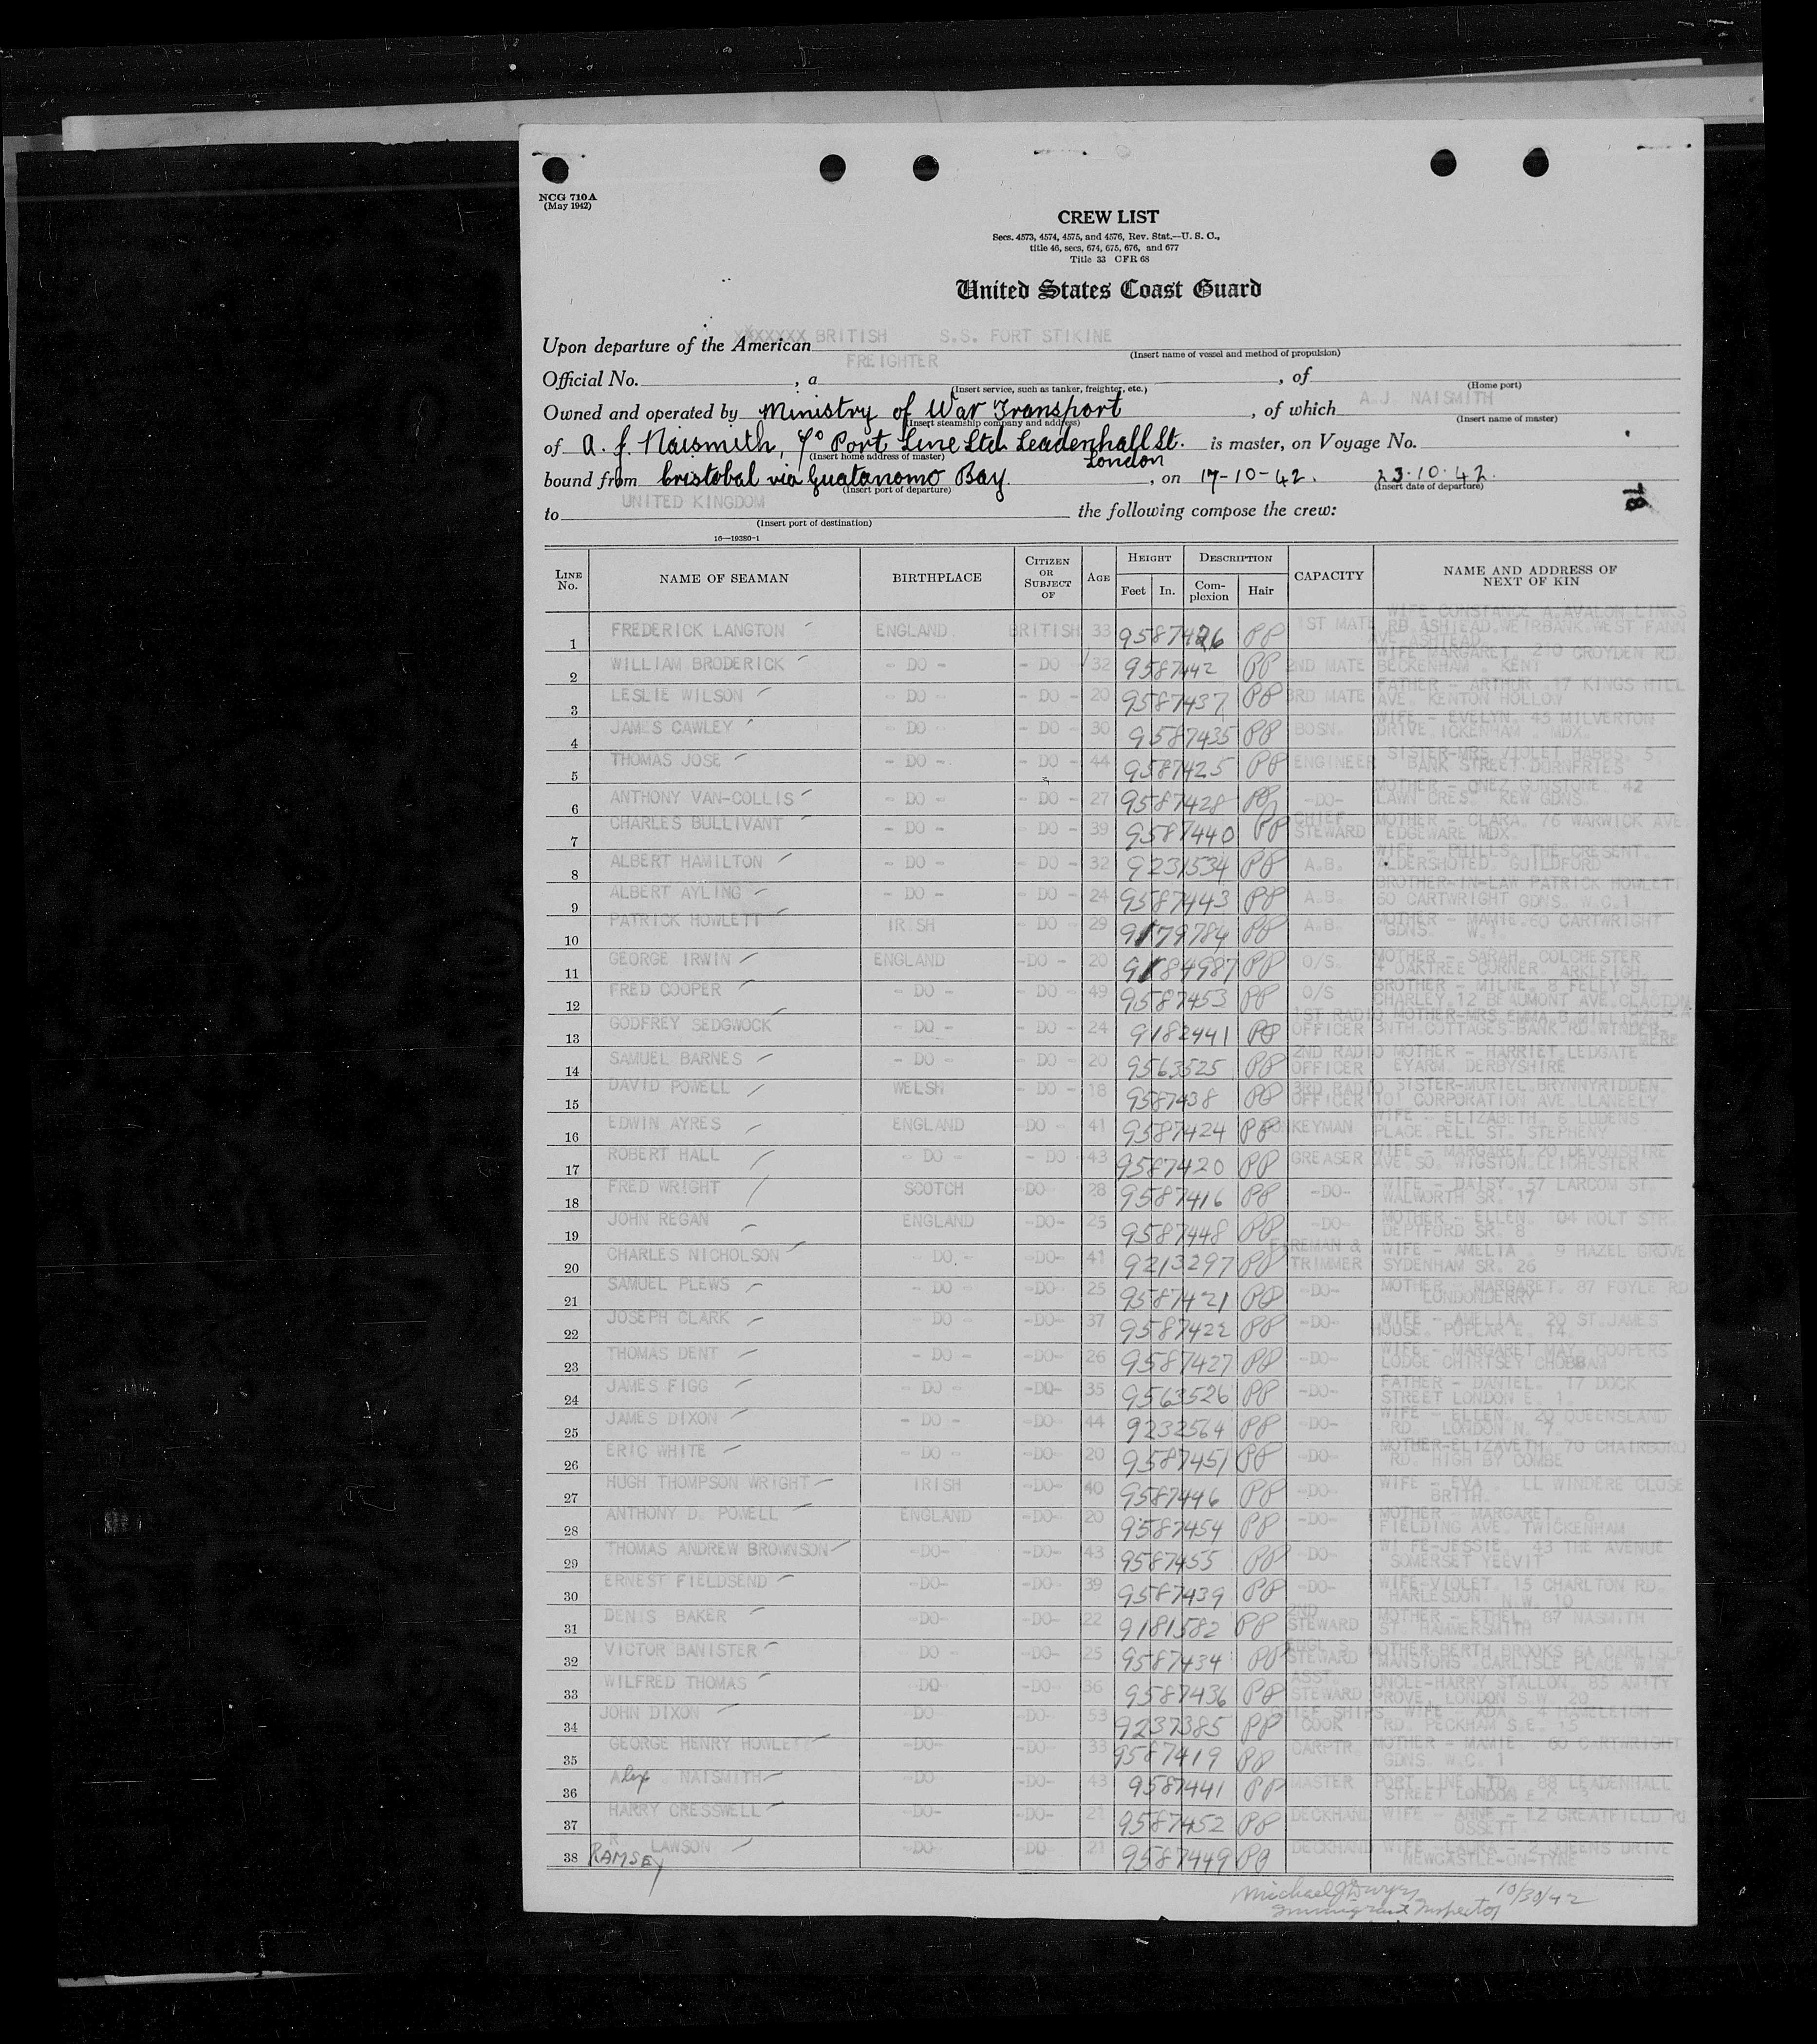 NCG 710A
(May 1942)
CREW LIST
Secs. 4573, 4574, 4575, and 4576, Rev. Stat.—U. S. C.,
title 46, secs, 674, 675, 676, and 677
Title 33 CFR 68
United States Coast Guard
Upon departure of the American XXXXXXX BRITISH S.S. FORT STIKINE
(Insert name of vessel and method of propulsion)
Official No. , a FREIGHTER , of
(Insert service, such as tanker, freighter, etc.) (Home port)
Owned and operated by Ministry of War Transport , of which A.J. NAISMITH
(Insert steamship company and address) (Insert name of master)
of A. J. Naismith, c/o Port Line Ltd Leadenhall St. London is master, on Voyage No.
(Insert home address of master)
bound from Cristobal via Guatanomo Bay. , on 17-10-42. 23.10.42.
(Insert port of departure) (Insert date of departure)
to UNITED KINGDOM the following compose the crew:
(Insert port of destination)
16—19380-1
LINE No. NAME OF SEAMAN BIRTHPLACE CITIZEN OR SUBJECT OF AGE HEIGHT Feet In. DESCRIPTION Complexion Hair CAPACITY NAME AND ADDRESS OF NEXT OF KIN
1 FREDERICK LANGTON ENGLAND BRITISH 33 9587426 PP 1ST MATE WIFE CONSTANCE A. AVALON LINKS RD ASHTEAD. WEIRBANK WEST FANN AVE ASHTEAD
2 WILLIAM BRODERICK - DO - - DO 32 9587442 PP 2ND MATE WIFE MARGARET. 210 CROYDEN RD. BECKENHAM . KENT
3 LESLIE WILSON - DO - - DO - 20 9587437 PP 3RD MATE FATHER - ARTHUR .17 KINGS HILL AVE. KENTON HOLLOW
4 JAMES CAWLEY - DO - - DO - 30 9587435 PP BOSN. WIFE - EVELYN. 45 MILVERTON DRIVE ICKENHAM . MDX.
5 THOMAS JOSE - DO -. - DO - 44 9587425 PP ENGINEER SISTER-MRS VIOLET HABBS 5 BANK STREET DORNFRIES
6 ANTHONY VAN-COLLIS - DO - - DO - 27 9587428 PP -DO- MOTHER - ONEZ GUNSTONE. 42 LAWN CRES. KEW GDNS.
7 CHARLES BULLIVANT - DO - DO - 39 9587440 PP CHIEF STEWARD MOTHER - CLARA. 76 WARWICK AVE. EDGEWARE MDX.
8 ALBERT HAMILTON - DO - - DO - 32 9231534 PP A.B. WIFE - THE CRESENT. ALDERSHOTED. GUILDFORD
9 ALBERT AYLING - DO - - DO - 24 9587443 PP A.B. BROTHER-IN-LAW PATRICK HOWLETT 60 CARTWRIGHT GDNS. W.C.1
10 PATRICK HOWLETT IRISH - DO 29 9179784 PP A.B. MOTHER - MAMIE.60 CARTWRIGHT GDNS. W.1.
11 GEORGE IRWIN ENGLAND -DO - 20 9184987 PP O/S. MOTHER - SARAH. COLCHESTER 4 OAKTREE CORNER. ARKLEIGH.
12 FRED COOPER - DO - - DO - 49 9587453 PP O/S BROTHER - MILNE. 8 FELLY ST. CHARLEY.12 BEAUMONT AVE.CLACTON
13 GODFREY SEDGWOCK - DO - - DO - 24 9182441 PP 1ST RADIO OFFICER MOTHER-MRS EMMA COTTAGES BANK RD.WINDER MERE
14 SAMUEL BARNES - DO - - DO - 20 9563525 PP 2ND RADIO OFFICER MOTHER - HARRIET.LEDGATE EYARM. DERBYSHIRE
15 DAVID POWELL WELSH - DO - 18 9587438 PP 3RD RADIO OFFICER SISTER-MURIEL.BRYNNYRIDDEN 101 CORPORATION AVE.LLANEELY
16 EDWIN AYRES ENGLAND DO - 41 9587424 PP KEYMAN WIFE - ELIZABETH. 6 LUDENS PLACE PELL ST. STEPHENY
17 ROBERT HALL - DO - - DO 43 9587420 PP GREASER WIFE - MARGARET 20 DEVONSHIRE AVE.SO. WIGSTON.LEICHESTER
18 FRED WRIGHT SCOTCH -DO 28 9587416 PP -DO- WIFE - DAISY. 57 LARCOM ST. WALWORTH SR. 17
19 JOHN REGAN ENGLAND -DO- 25 9587448 PP -DO- MOTHER - ELLEN. 104 ROLT STR. DEPTFORD SR. 8
20 CHARLES NICHOLSON DO. - -DO- 41 9213297 PP FIREMAN & TRIMMER WIFE - AMELIA . 9 HAZEL GROVE SYDENHAM SR. 26
21 SAMUEL PLEWS - DO - -DO- 25 9587421 PP -DO- MOTHER - MARGARET. 87 FOYLE RD LONDONDERRY
22 JOSEPH CLARK - DO - -DO- 37 9587422 PP -DO- WIFE - AMELIA. 20 ST.JAMES HOUSE. POPLAR E. 14.
23 THOMAS DENT - DO - -DO- 26 9587427 PP -DO- WIFE - MARGARET MAY. COOPERS LODGE CHIRTSEY CHOBHAM
24 JAMES FIGG - DO - -DO- 35 9563526 PP -DO- FATHER - DANIEL. 17 DOCK STREET LONDON E. 1.
25 JAMES DIXON - DO - -DO- 44 9232564 PP -DO- WIFE - ELLEN. 20 QUEENSLAND RD. LONDON N. 7.
26 ERIC WHITE - DO - -DO- 20 9587451 PP -DO- MOTHER-ELIZAVETH. 70 CHAIRBORO RD. HIGH BY COMBE
27 HUGH THOMPSON WRIGHT IRISH -DO- 40 9587446 PP -DO- WIFE - EVA. LL WINDERE CLOSE BRITH.
28 ANTHONY D. POWELL ENGLAND -DO- 20 9587454 PP -DO- MOTHER - MARGARET. 6 FIELDING AVE. TWICKENHAM
29 THOMAS ANDREW BROWNSON -DO- -DO- 43 9587455 PP DO- WI FE-JESSIE. 43 THE AVENUE SOMERSET YEEVIT
30 ERNEST FIELDSEND -DO- -DO- 39 9587439 PP -DO- WIFE-VIOLET. 15 CHARLTON RD. HARLESDON. N.W. 10
31 DENIS BAKER -DO- -DO- 22 9181582 PP 2ND STEWARD MOTHER - ETHEL. 87 NASMITH ST. HAMMERSMITH
32 VICTOR BANISTER DO - -DO- 25 9587434 PP STEWARD MOTHER-BERTH BROOKS 6A CARLISLE MANSIONS. CARLISLE PLACE
33 WILFRED THOMAS -DO -DO- 36 9587436 PP ASST. STEWARD UNCLE-HARRY STALLON. 85 AMITY GROVE. LONDON S.W. 20
34 JOHN DIXON -DO -DO- 53 9237385 PP CHIEF SHIPS COOK WIFE - ADA. 4 RD. PECKHAM S.E. 15
35 GEORGE HENRY HOWLETT -DO- -DO- 33 9587419 PP CARPTR. MOTHER - MAMIE 60 CARTWRIGHT GDNS. W.C. 1
36 Alex. NAISMITH -DO -DO- 43 9587441 PP MASTER PORT LINE LTD. 88 LEADENHALL STREET LONDON E C 3
37 HARRY CRESSWELL -DO- -DO- 21 9587452 PP DECKHAND WIFE - ANNE - 12 GREATFIELD RD OSSETT
38 R. RAMSEY LAWSON -DO- -DO 21 9587449 PP DECKHAND WIFE - 2 QUEENS DRIVE NEWCASTLE-ON-TYNE
Michael J Dwyer 10/30/42
Immigrant Inspector